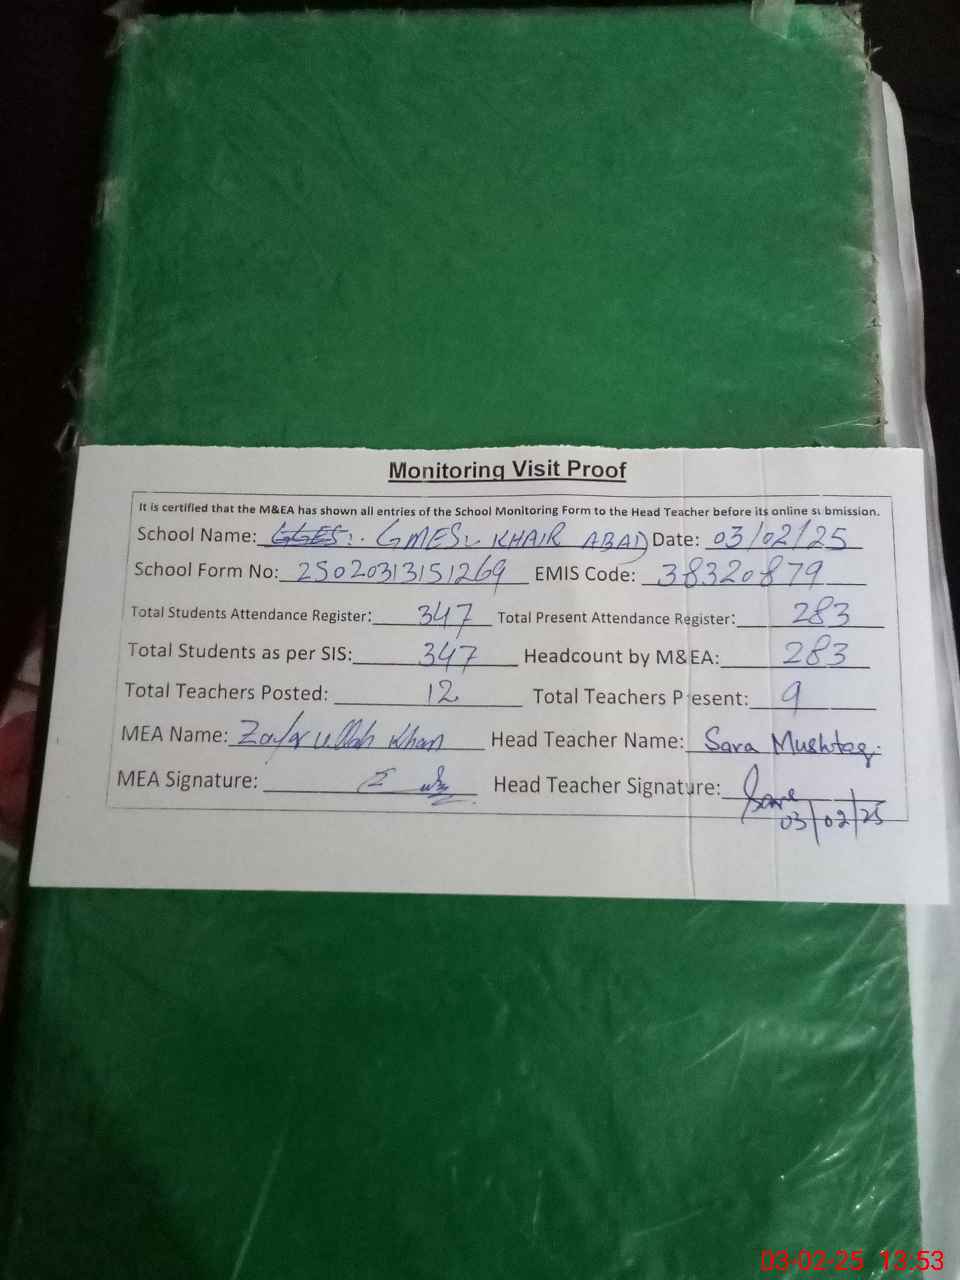 Monitoring Visit Proof
It is certified that the M&EA has shown all entries of the School Monitoring Form to the Head Teacher before its online submission.
School Name: GGES:. GMES:. KHAIR ABAD Date: 03/02/25
School Form No: 2502031315 1269 EMIS Code: 38320879
Total Students Attendance Register: 347 Total Present Attendance Register: 283
Total Students as per SIS: 347 Headcount by M&EA: 283
Total Teachers Posted: 12 Total Teachers Present: 9
MEA Name: Zafar ullah Khan Head Teacher Name: Sara Mushtaq.
MEA Signature: Head Teacher Signature: Sara
03/02/25
03-02-25 13:53